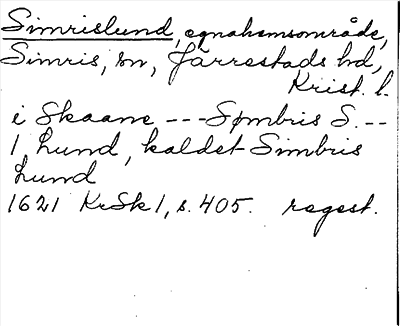 Simrislund, egnahemsområde,
Simris, sn, Järrestads hd,
Krist. l.
i Skaane --- Sømbris S. --
1 Lund, kaldet Simbris
Lund
1621 KrSk 1, s. 405. regest.